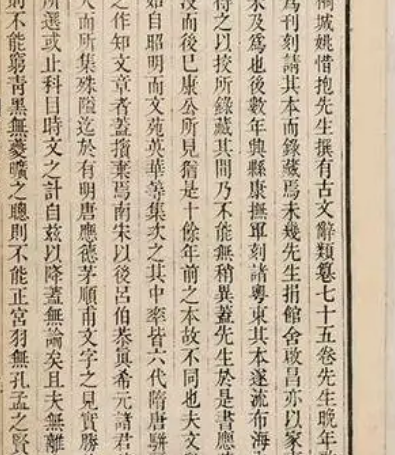 城姚惜抱先生撰有古文辭類篹七十五卷先生晚年
爲刊刻請其本而錄藏焉未幾先生捐館舍啟昌亦以家
未及爲也後數年興縣康撫軍刻諸粵東其本遂流布海
得之以挍所錄藏其間乃不能無稍異蓋先生於是書應
沒而後已康公所見猶是十餘年前之本故不同也夫文
始自昭明而文苑英華等集次之其中率皆六代隋唐駢
之作知文章者蓋擯棄焉南宋以後呂伯恭眞希元諸君
人而所集殊隘迄於有明唐應德茅順甫文字之見實勝
所選或止科目時文之計自茲以降蓋無論矣且夫無離
則不能窮青黑無夔曠之聰則不能正宮羽無孔孟之賢